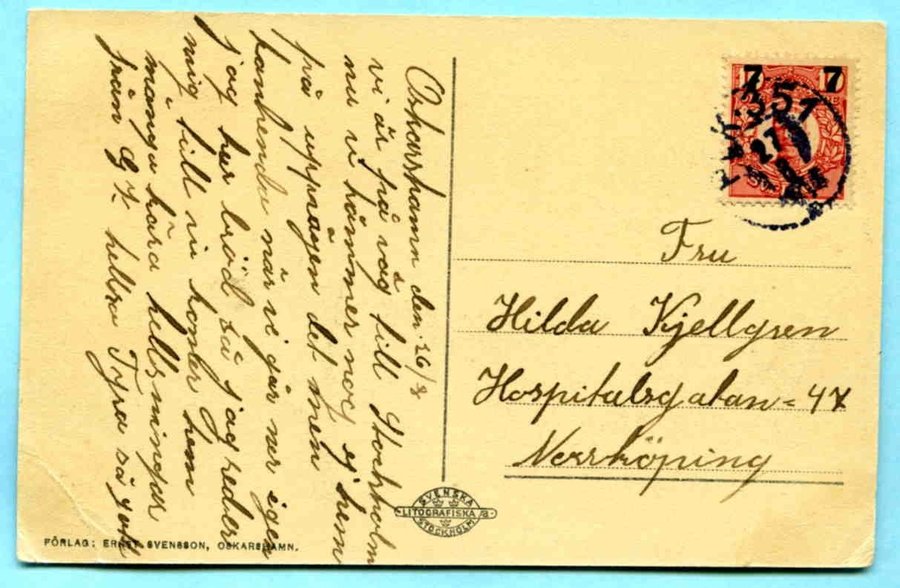 Oskarshamn den 26/8
vi är på väg till Stockholm
nu vi kommer nog ej hem
på uppvägen det men
kanhenda när vi går ner igen
jag har bröd så jag reder
mig till ni homber hem
många kära hellsningar
från G K. hellsa Tyra så gott
Fru
Hilda Kjellgren
Hospitalsgatan = 47
Norrköping
7 7
351
27
SVENSKA
LITOGRAFISKA A/B
STOCKHOLM
FÖRLAG: ERNST SVENSSON, OSKARSHAMN.